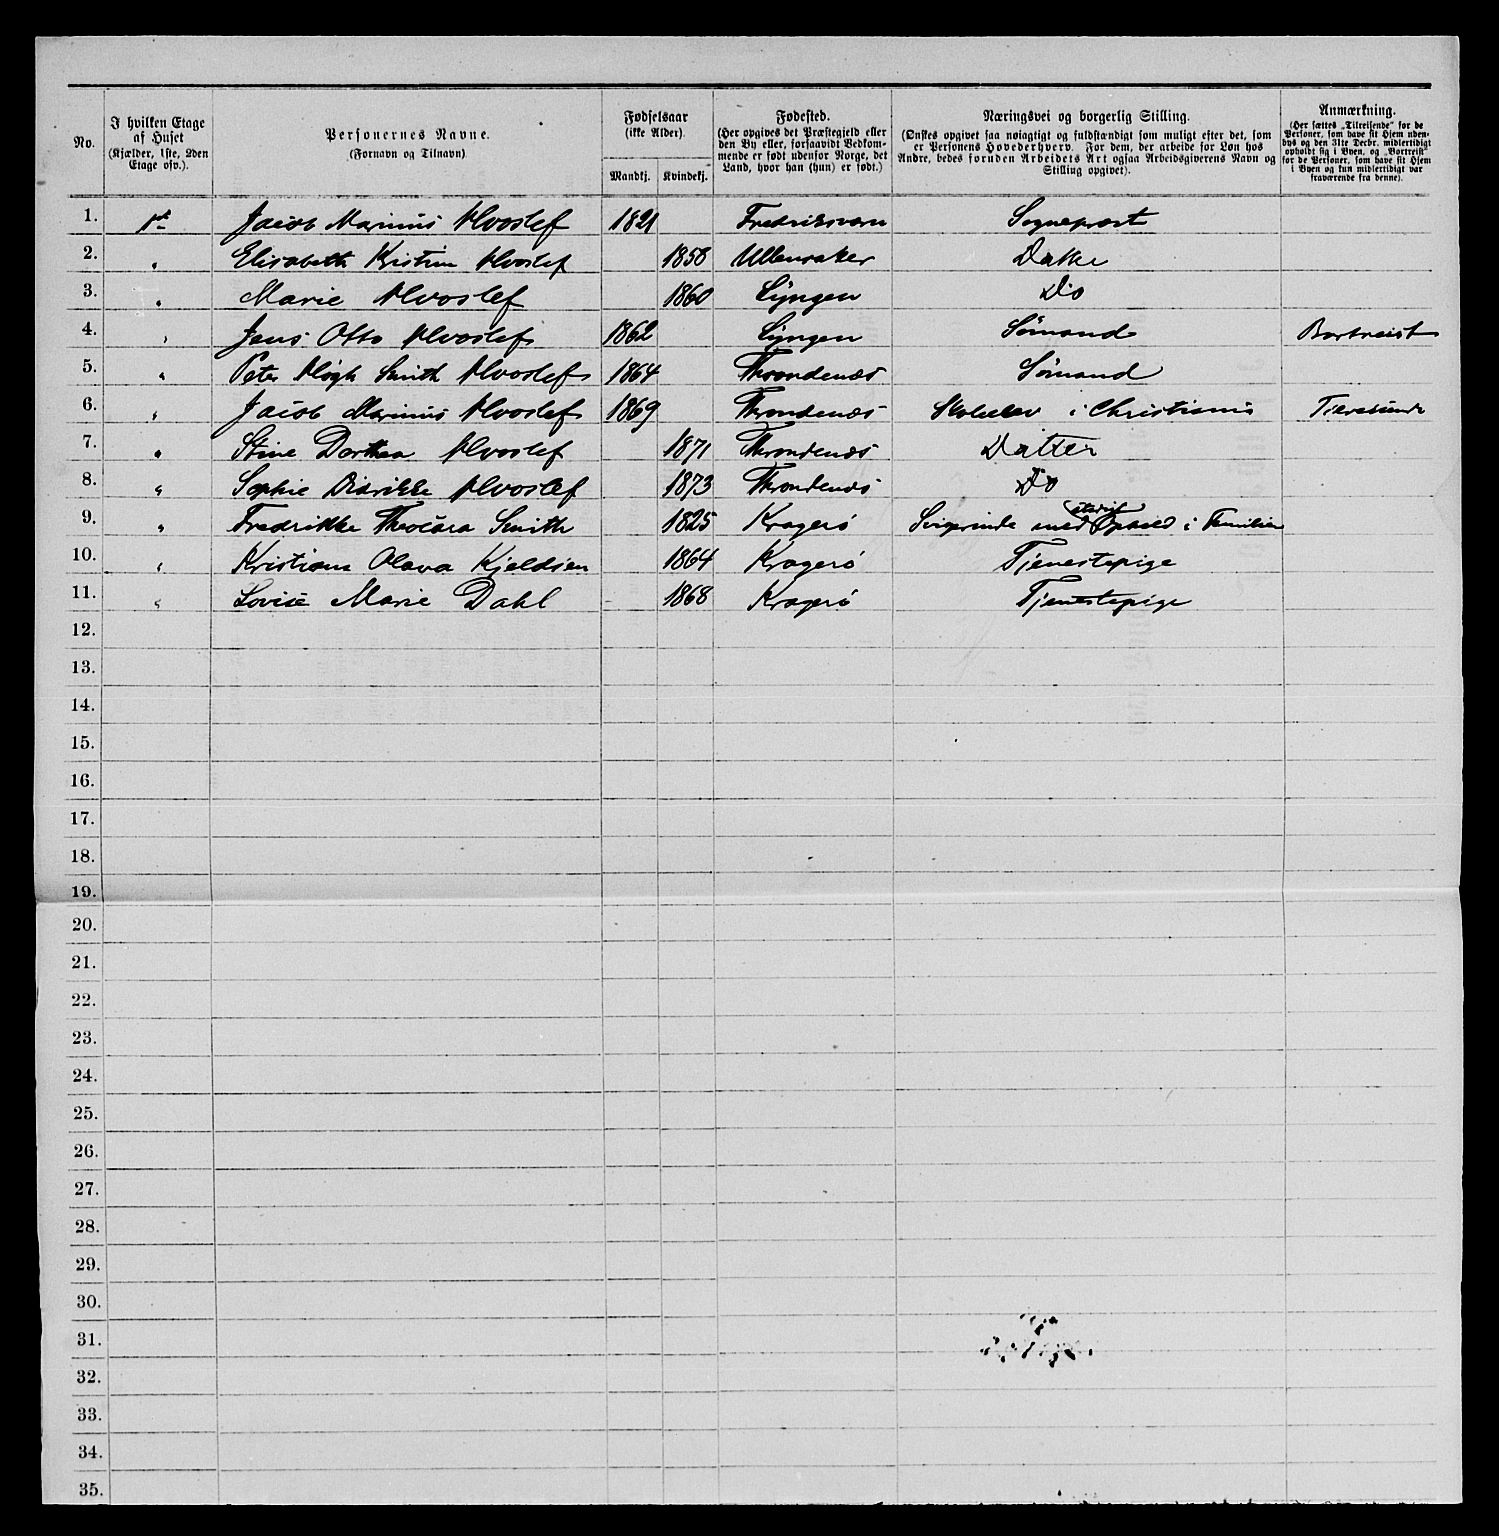 No.
I hvilken Etage af Huset (Kjælder, 1ste, 2den Etage osv.).
Personernes Navne. (Fornavn og Tilnavn)
Fødselsaar (ikke Alder).
Mandkj. Kvindekj.
Fødested. (Her opgives det Præstegjeld eller den By eller, forsaavidt Vedkommende er født udenfor Norge, det Land, hvor han (hun) er født.)
Næringsvei og borgerlig Stilling. (Ønskes opgivet saa nøiagtigt og fuldstændigt som muligt efter det, som er Personens Hovederhverv. For dem, der arbeide for Løn hos Andre, bedes foruden Arbeidets Art ogsaa Arbeidsgiverens Navn og Stilling opgivet).
Anmærkning. (Her sættes „Tilreisende“ for de Personer, som have sit Hjem udenbys og den 31te Decbr. midlertidigt opholdt sig i Byen, og „Bortreist“ for de Personer, som have sit Hjem i Byen og kun midlertidigt var fraværende fra denne).
1. 1st Jacob Marinus Hvoslef 1821 Fredriksværn Sogneprest
2. " Elisabeth Kristine Hvoslef 1858 Ullensaker Datter
3. " Marie Hvoslef 1860 Lyngen Do
4. " Jens Otto Hvoslef 1862 Lyngen Sømand Bortreist
5. " Peter Høgh Smith Hvoslef 1864 Throndenæs Sømand
6. " Jacob Marinus Hvoslef 1869 Throndenæs Skoleelev i Christiania Tilreisende
7. " Stine Dorthea Hvoslef 1871 Throndenæs Datter
8. " Sophie Didrikke Hvoslef 1873 Throndenæs Do
9. " Fredrikke Theodora Smith 1825 Kragerø Svigerinde med stadigt Ophold i Familien
10. " Kristiane Olava Kjeldsen 1864 Kragerø Tjenestepige
11. " Lovise Marie Dahl 1868 Kragerø Tjenestepige
12.
13.
14.
15.
16.
17.
18.
19.
20.
21.
22.
23.
24.
25.
26.
27.
28.
29.
30.
31.
32.
33.
34.
35.